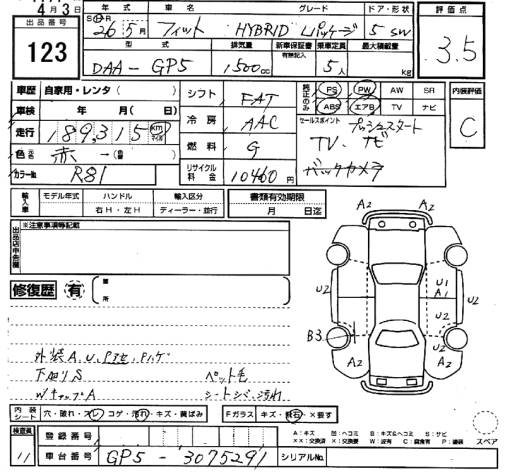 4月3日
年式 車名 グレード ドア・形状 評価点
出品番号 S H R 26年 5月 フィット HYBRID Lパッケージ 5 SW 3.5
123 型式 排気量 新車保証書 有無記入 乗車定員 最大積載量
DAA-GP5 1500cc 5人 kg
車歴 自家用・レンタ( ) シフト FAT 純正のみ PS PW AW SR 内装評価
車検 年 月( 日) ABS エアB TV ナビ C
冷房 AAC セールスポイント プッシュスタート
走行 189,315 km マイル TV ナビ
色 元色 赤 -(替 ) 燃料 G バックカメラ
カラーNo. R81 リサイクル料金 10460円
輸入車 モデル年式 ハンドル 輸入区分 書類有効期限
右H・左H ディーラー・並行 月 日迄 A2 A2
出品店申告欄 ※注意事項等記載
U2 U1 U2
A1
修復歴 有 ( 箇所 )
U2
B3 U2
外装A、U、
A2 A2
下廻りS ペット毛
Wキャップ A シートシミ、汚れ
内装シート 穴・破れ・スレ コゲ・汚れ・キズ・黄ばみ Fガラス キズ・飛石・×要す
検査員 登録番号 A:キズ U:ヘコミ B:キズ&ヘコミ S:サビ
XX:交換済 X:交換要 W:波有 C:腐食有 P:塗装 スペア
11 車台番号 GP5-3075291 シリアルNo.